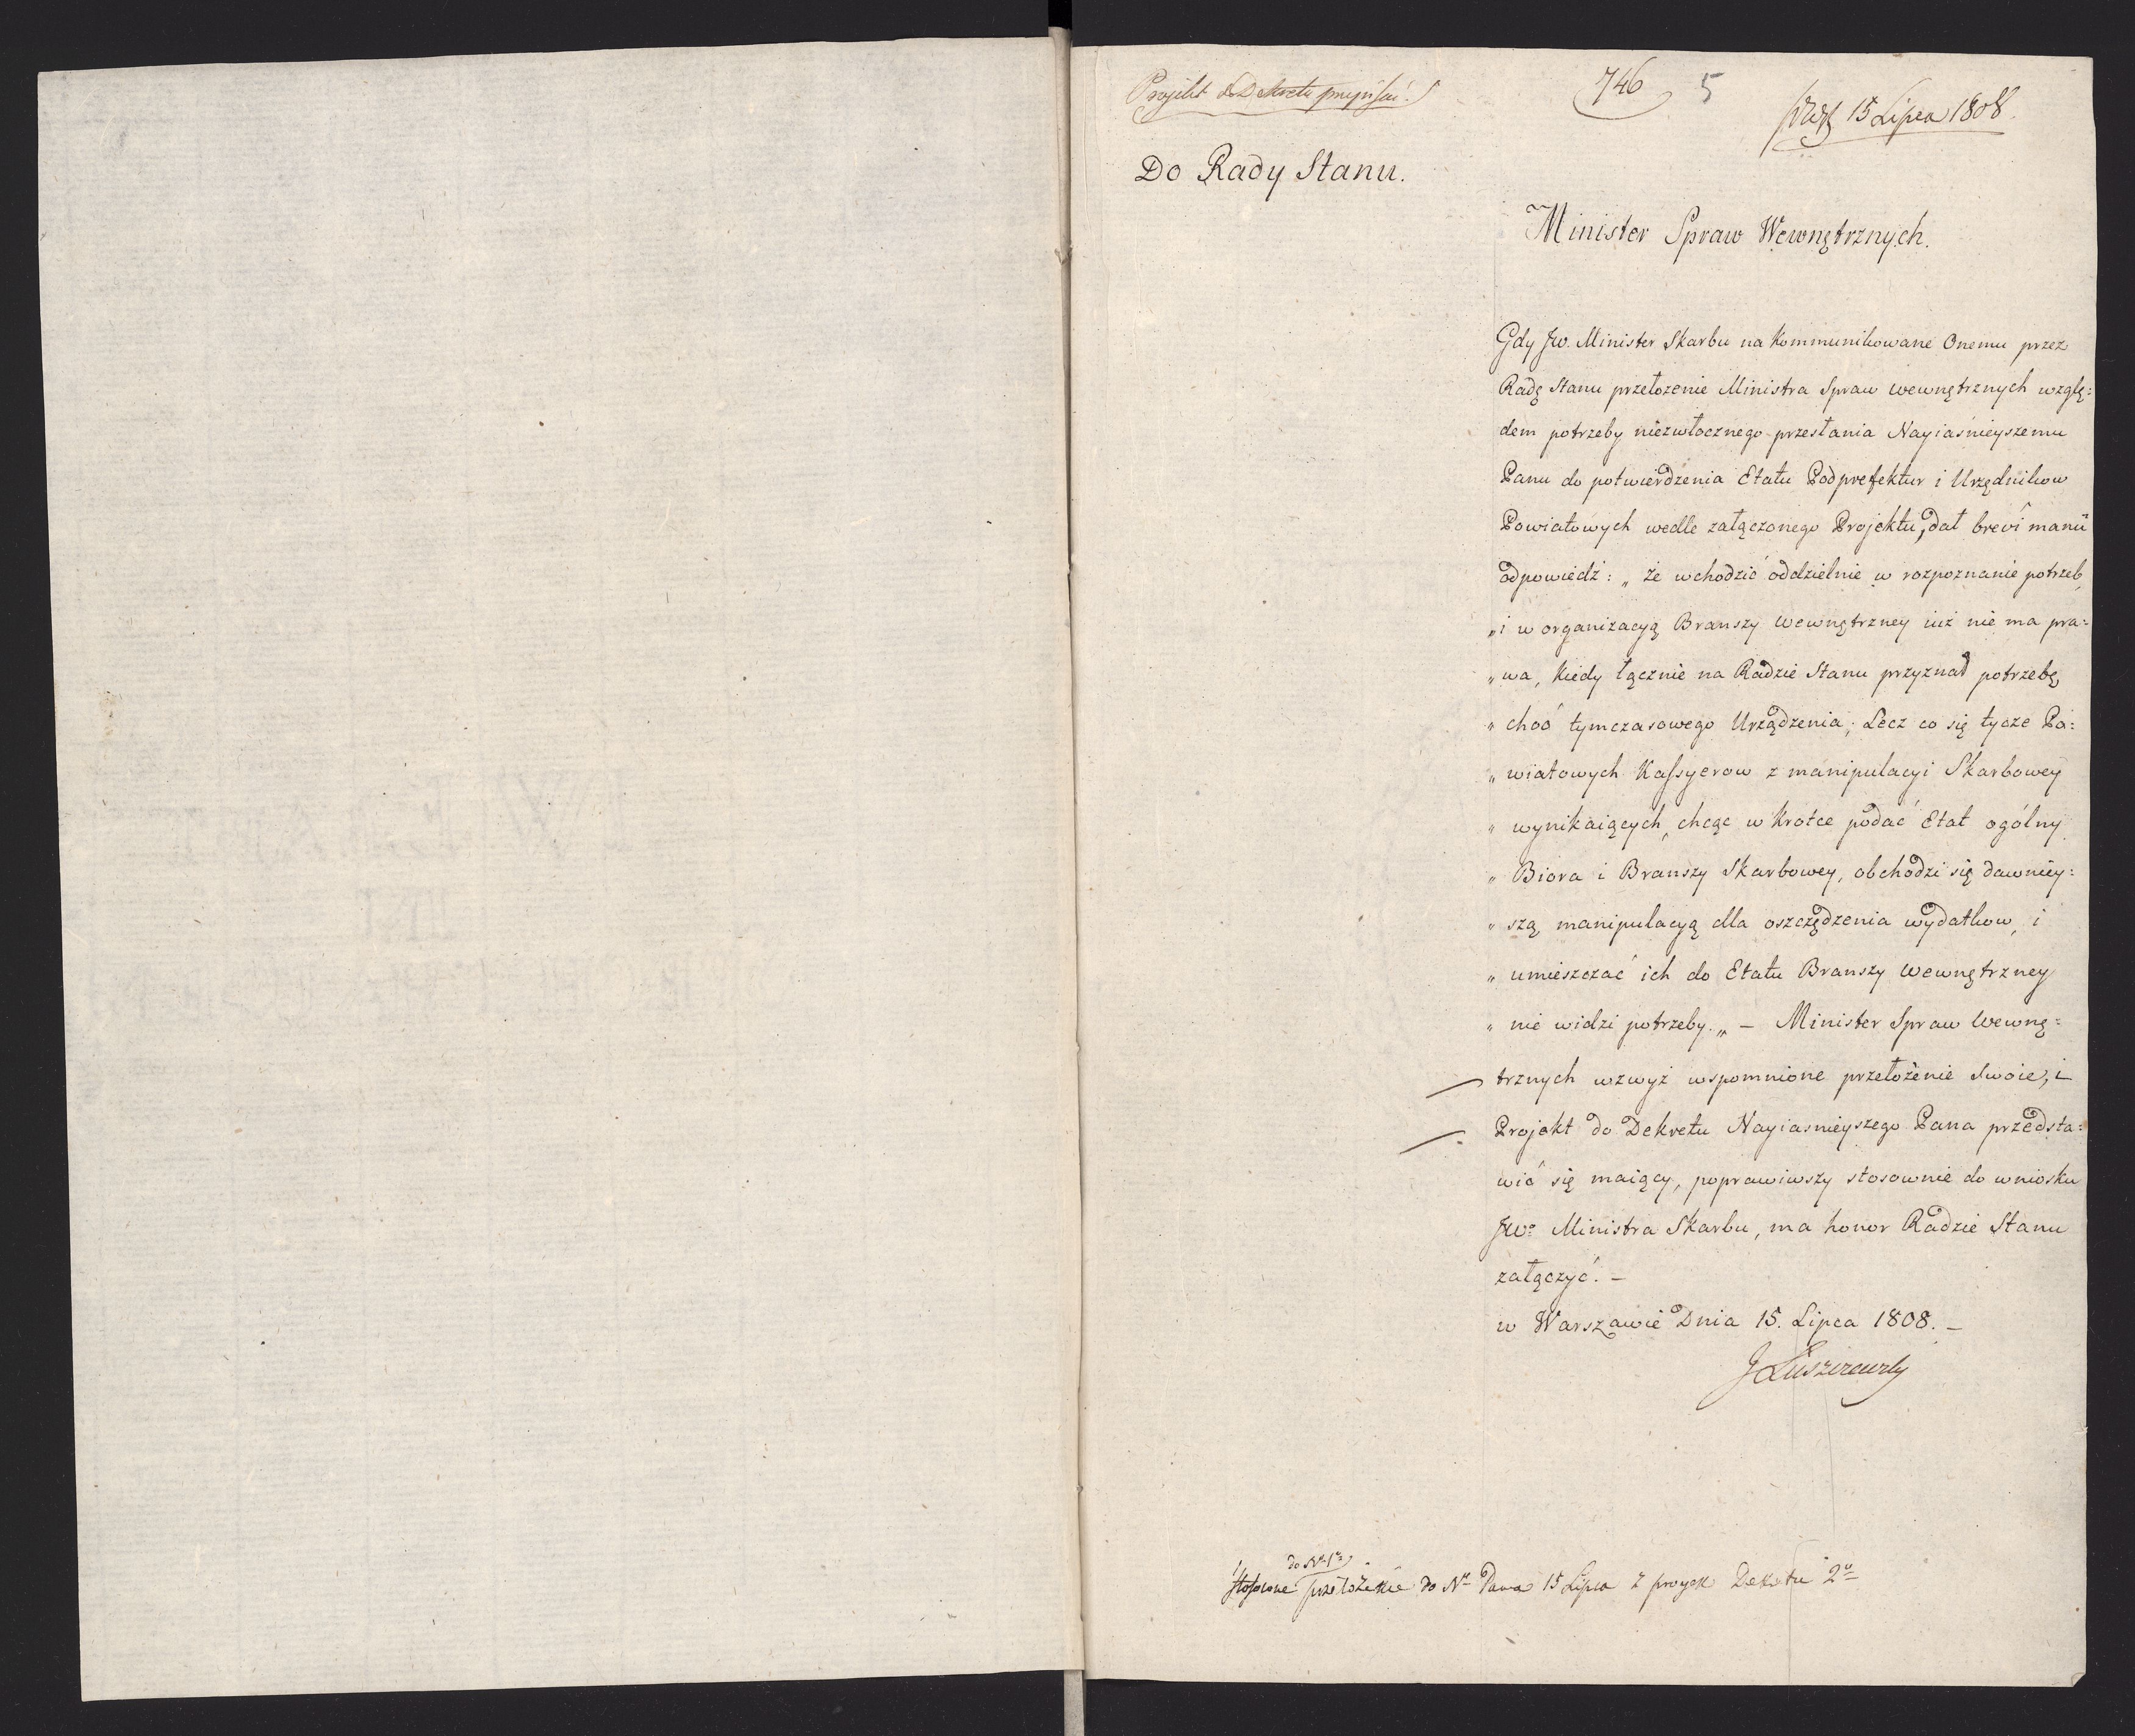 Projekt do Dekretu przepisać.
746
5
15 Lipca 1808.
Do Rady Stanu.
Minister Spraw Wewnętrznych.
Gdy Jw. Minister Skarbu na kommunikowane Onemu przez
Radę Stanu przełożenie Ministra Spraw wewnętrznych wzglę=
dem potrzeby niezwłocznego przesłania Nayiaśnieyszemu
Panu do potwierdzenia Etatu Podprefektur i Urzędnikow
Powiatowych wedle załączonego Projektu, dał brevi manu
odpowiedź: „ że wchodzić oddzielnie w rozpoznanie potrzeb,
„ i w organizacyą Branszy wewnętrzney iuż nie ma pra=
„ wa, kiedy łącznie na Radzie Stanu przyznał potrzebę,
„ choć tymczasowego Urządzenia; Lecz co się tycze Po=
„ wiatowych Kassyerow z manipulacyi Skarbowey
„ wynikaiących, chcąc w krotce podać Etat ogólny
„ Biora i Branszy Skarbowey, obchodzi się dawniey=
„ szą manipulacyą dla oszczędzenia wydatkow, i
„ umieszczać ich do Etatu Branszy wewnętrzney
„ nie widzi potrzeby. „ – Minister Spraw Wewnę=
trznych wzwyż wspomnione przełożenie swoie, i
Projekt do Dekretu Nayiasnieyszego Pana przedsta=
wić się maiący, poprawiwszy stosownie do wniosku
Jwo Ministra Skarbu, ma honor Radzie Stanu
załączyć. –
w Warszawie Dnia 15. Lipca 1808. –
J Łuszczewsky
do
Stosowne przełożenie do No Pana 15 Lipca z proyek Dekretu 2o